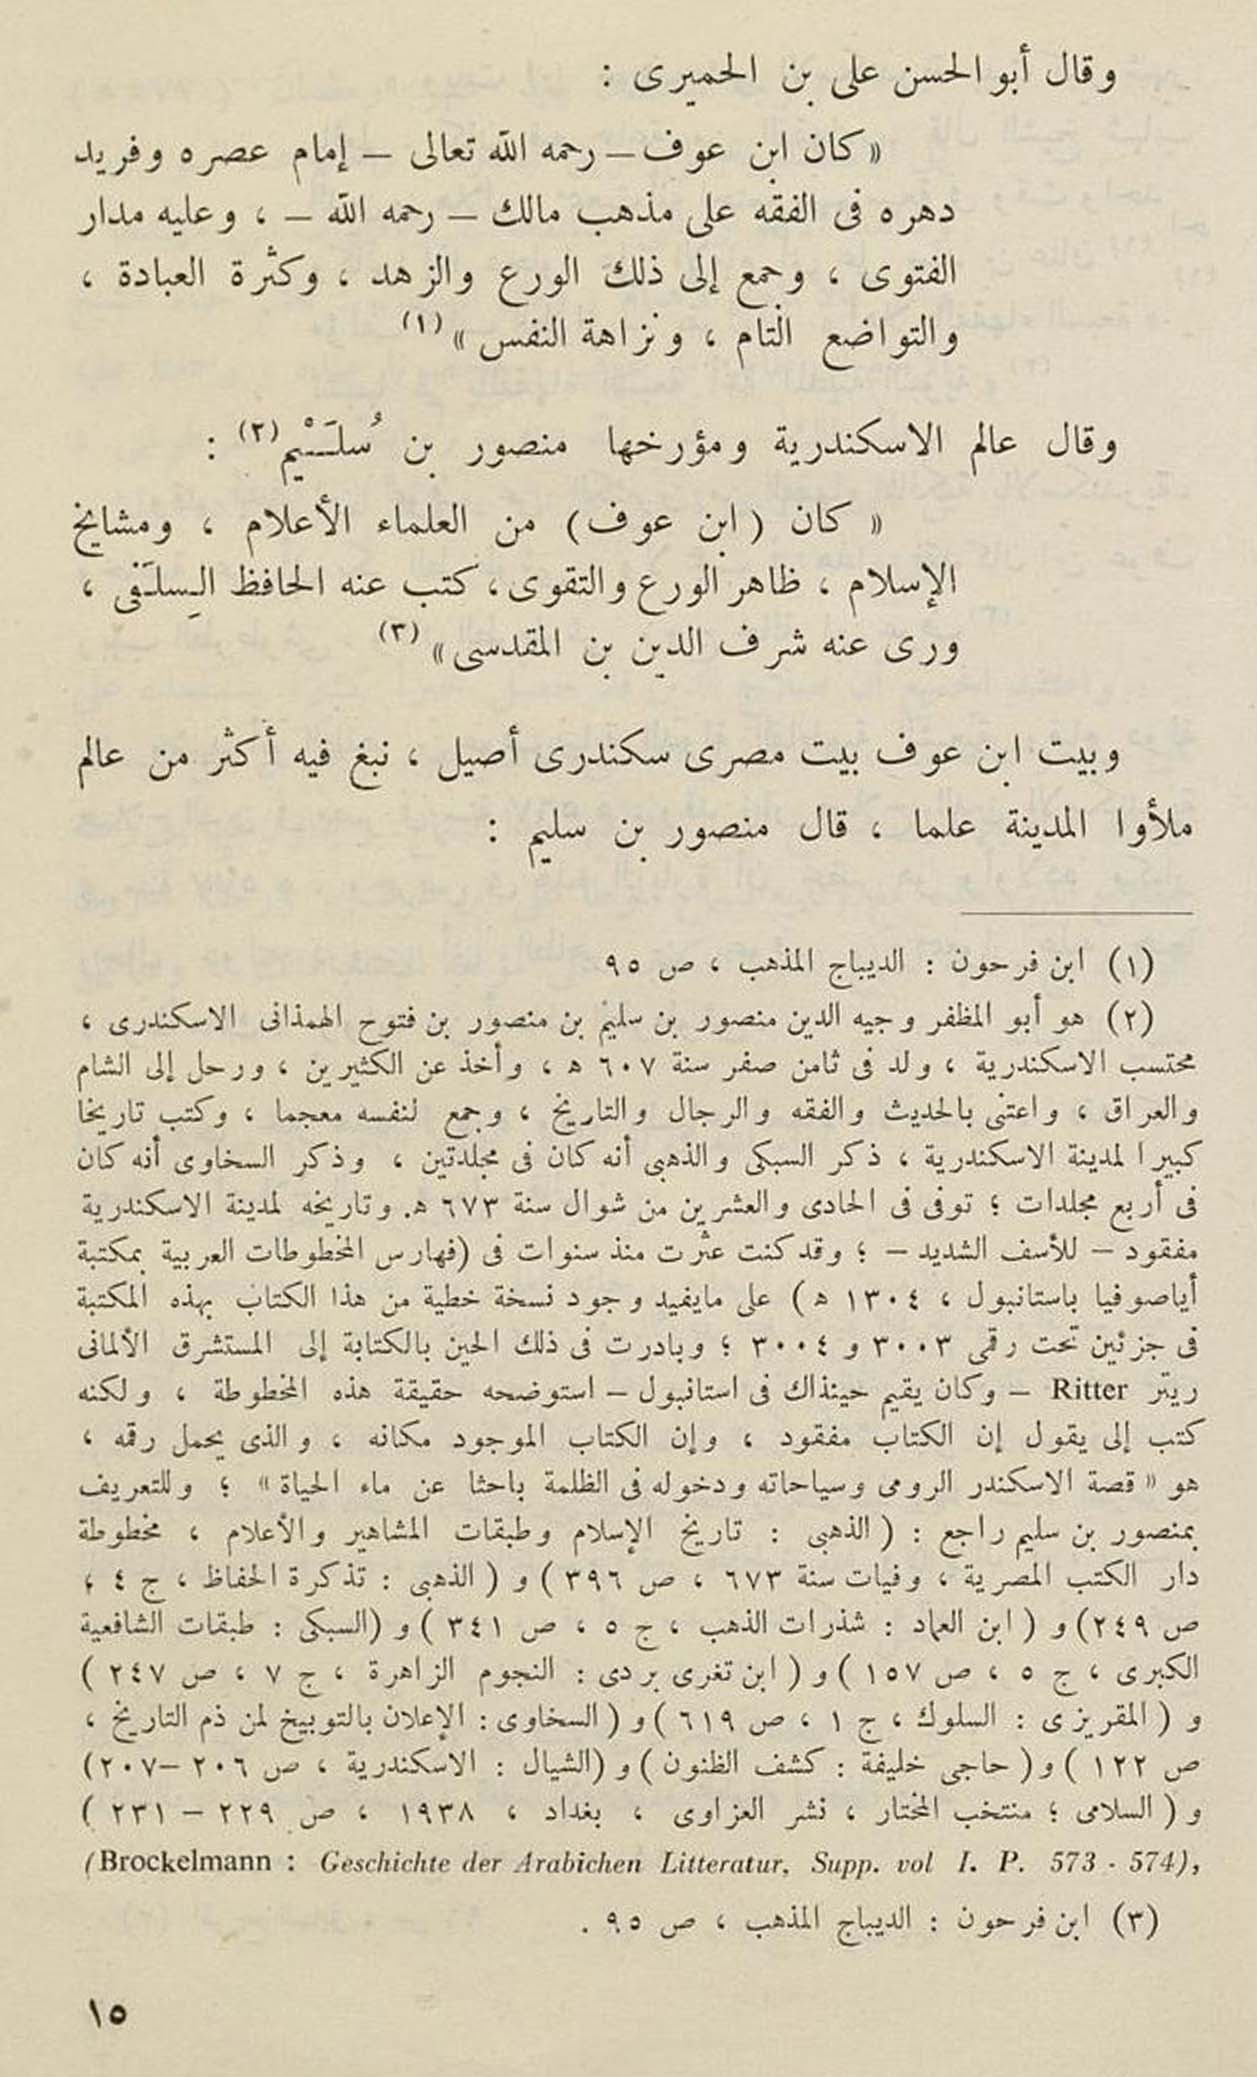 وقال أبو الحسن على بن الحميرى :
« كان ابن عوف – رحمه الله تعالى – إمام عصره وفريد
دهره فى الفقه على مذهب مالك – رحمه الله – ، وعليه مدار
الفتوى ، وجمع إلى ذلك الورع والزهد ، وكثرة العبادة ،
والتواضع التام ، ونزاهة النفس » (١)
وقال عالم الاسكندرية ومؤرخها منصور بن سُلَيْم (٢) :
« كان (ابن عوف) من العلماء الأعلام ، ومشايخ
الإسلام ، ظاهر الورع والتقوى ، كتب عنه الحافظ السِلَفى ،
ورى عنه شرف الدين بن المقدسى » (٣)
وبيت ابن عوف بيت مصرى سكندرى أصيل ، نبغ فيه أكثر من عالم
ملأوا المدينة علما ، قال منصور بن سليم :
(١) ابن فرحون : الديباج المذهب ، ص ٩٥
(٢) هو أبو المظفر وجيه الدين منصور بن سليم بن منصور بن فتوح الهمذانى الاسكندرى ،
محتسب الاسكندرية ، ولد فى ثامن صفر سنة ٦٠٧ ه ، وأخذ عن الكثيرين ، ورحل إلى الشام
والعراق ، واعتنى بالحديث والفقه والرجال والتاريخ ، وجمع لنفسه معجما ، وكتب تاريخا
كبيرا لمدينة الاسكندرية ، ذكر السبكى والذهبى أنه كان فى مجلدتين ، وذكر السخاوى أنه كان
فى أربع مجلدات ؛ توفى فى الحادى والعشرين من شوال سنة ٦٧٣ ه. وتاريخه لمدينة الاسكندرية
مفقود – للأسف الشديد – ؛ وقد كنت عثرت منذ سنوات فى (فهارس المخطوطات العربية بمكتبة
أياصوفيا باستانبول ، ١٣٠٤ ه ) على مايفيد وجود نسخة خطية من هذا الكتاب بهذه المكتبة
فى جزئين تحت رقمى ٣٠٠٣ و ٣٠٠٤ ؛ وبادرت فى ذلك الحين بالكتابة إلى المستشرق الألمانى
ريتر Ritter – وكان يقيم حينذاك فى استانبول – استوضحه حقيقة هذه المخطوطة ، ولكنه
كتب إلى يقول إن الكتاب مفقود ، وإن الكتاب الموجود مكانه ، والذى يحمل رقمه ،
هو « قصة الاسكندر الرومى وسياحاته ودخوله فى الظلمة باحثا عن ماء الحياة » ؛ وللتعريف
بمنصور بن سليم راجع : ( الذهبى : تاريخ الإسلام وطبقات المشاهير والأعلام ، مخطوطة
دار الكتب المصرية ، وفيات سنة ٦٧٣ ، ص ٣٩٦ ) و ( الذهبى : تذكرة الحفاظ ، ج ٤ ،
ص ٢٤٩) و ( ابن العماد : شذرات الذهب ، ج ٥ ، ص ٣٤١ ) و (السبكى : طبقات الشافعية
الكبرى ، ج ٥ ، ص ١٥٧ ) و ( ابن تغرى بردى : النجوم الزاهرة ، ج ٧ ، ص ٢٤٧ )
و ( المقريزى : السلوك ، ج ١ ، ص ٦١٩ ) و ( السخاوى : الإعلان بالتوبيخ لمن ذم التاريخ ،
ص ١٢٢ ) و ( حاجى خليفة : كشف الظنون ) و (الشيال : الاسكندرية ، ص ٢٠٦ – ٢٠٧)
و ( السلامى ؛ منتخب المختار ، نشر العزاوى ، بغداد ، ١٩٣٨ ، ص ٢٢٩ – ٢٣١ )
(Brockelmann : Geschichte der Arabichen Litteratur, Supp. vol I. P. 573 - 574),
(٣) ابن فرحون : الديباج المذهب ، ص ٩٥ .
١٥